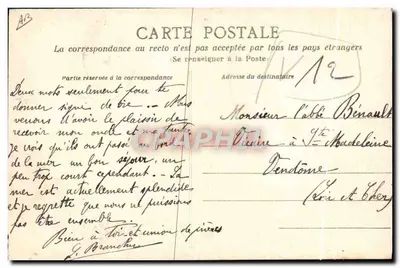 CARTE POSTALE
La correspondance au recto n'est pas acceptée par tous les pays étrangers
(Se renseigner à la Poste)
Partie réservée à la correspondance
Adresse du destinataire
12
Deux mots seulement pour te
donner signe de vie .. Nous
venons d'avoir le plaisir de
recevoir mon oncle et ma tante.
Je vois qu'ils ont passé au bord
de la mer un bon séjour, un
peu trop court cependant. - La
mer est actuellement splendide
et je regrette que nous ne puissions
pas être ensemble.
Bien à toi et union de prières
G.
Monsieur l'abbé Bénault
Vicaire à Ste Madeleine
Vendôme
(Loir et Cher)
CPARAMA